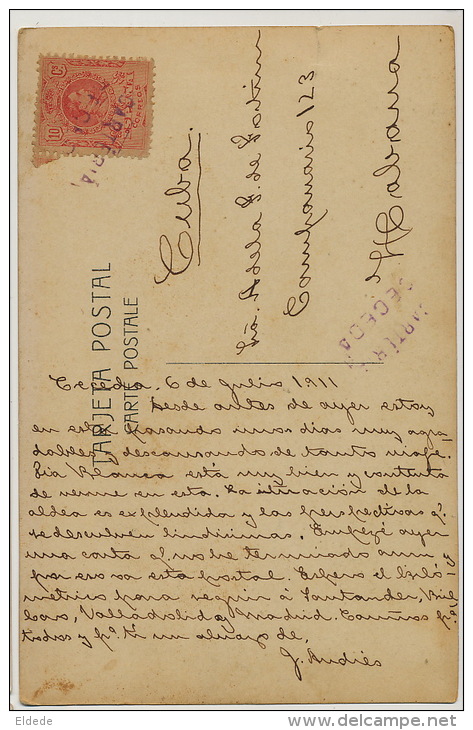 10 Cs
CORREOS
CARTERIA
CECEDA
TARJETA POSTAL
CARTE POSTALE
Sra. Adela G. de
Campanario 123
Habana
Cuba.
CARTERIA
CECEDA
Ceceda. 6 de Julio 1911
Desde antes de ayer estoy
en esta pasando unos dias muy agra
dables y descansando de tanto viaje.
Tia Blanca está muy bien y contenta
de verme en esta. La situación de la
aldea es explendida y las perspectivas q.
se descubren lindisimas. Empezé ayer
una carta q. no he terminado aun y
por eso va esta postal. Espero el kiló-
metrico para seguir á Santander, Bil
bao, Valladolid y Madrid. Cariños pa.
todos y pa. tí un abrazo de,
J. Andrés
Eldede
www.delcampe.net